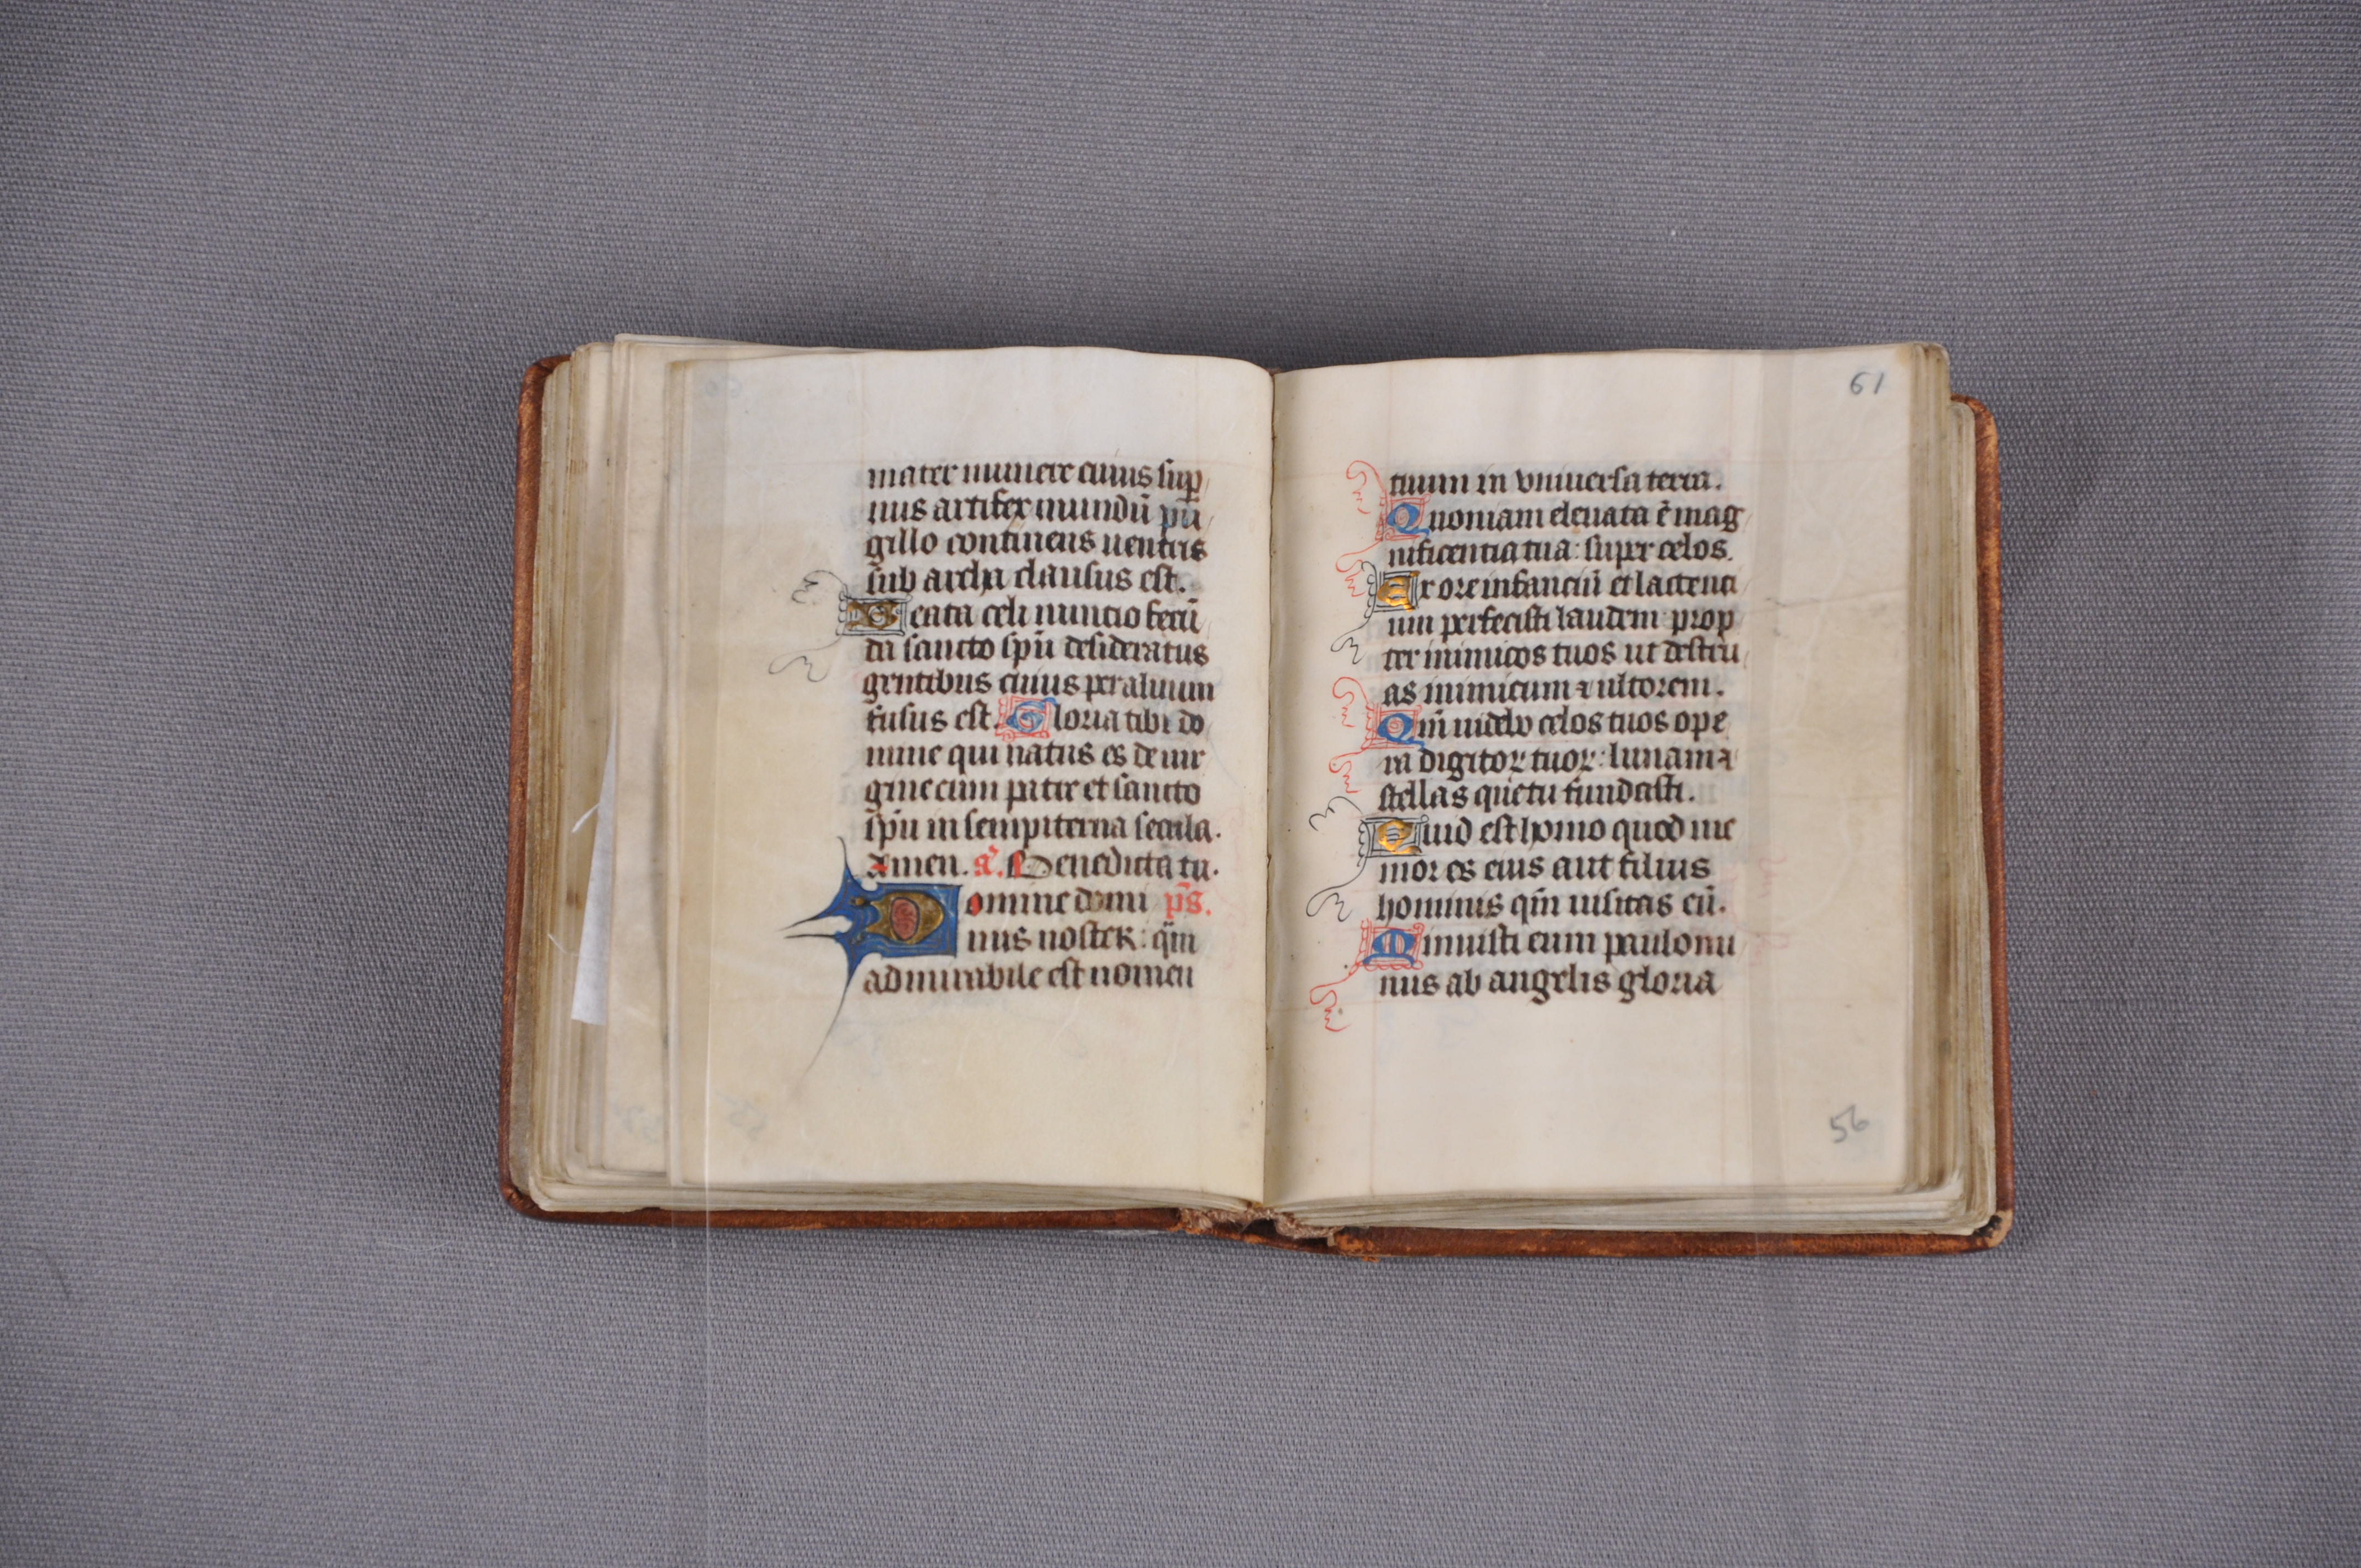 mater munere cuius sup̲
nus artifex mundū pu
gillo continens uentris
sub archa clausus est.
Beata celi nuncio fecū
da sancto sp̄u desideratus
gentibus cuius per aluum
fusus est. Gloria tibi do
mine qui natus es de uir
gine cum patre et sancto
sp̄u in sempiterna secula.
Amen. a͛. Benedicta tu.
Domine domi p̄s.
nus noster: qm̄
admirabile est nomen
61
tuum in vniuersa terra.
Quoniam eleuata ē mag
nificentia tua: super celos.
Ex ore infanciū et lactenci
um perfecisti laudem prop
ter inimicos tuos ut destru
as inimicum ⁊ ultorem.
Qm̄ uidebo celos tuos ope
ra digitoꝝ tuoꝝ: lunam ⁊
stellas que tu fundasti.
Quid est homo quod me
mor es eius aut filius
hominis qm̄ uisitas eū.
Minuisti eum paulomi
nus ab angelis gloria
56